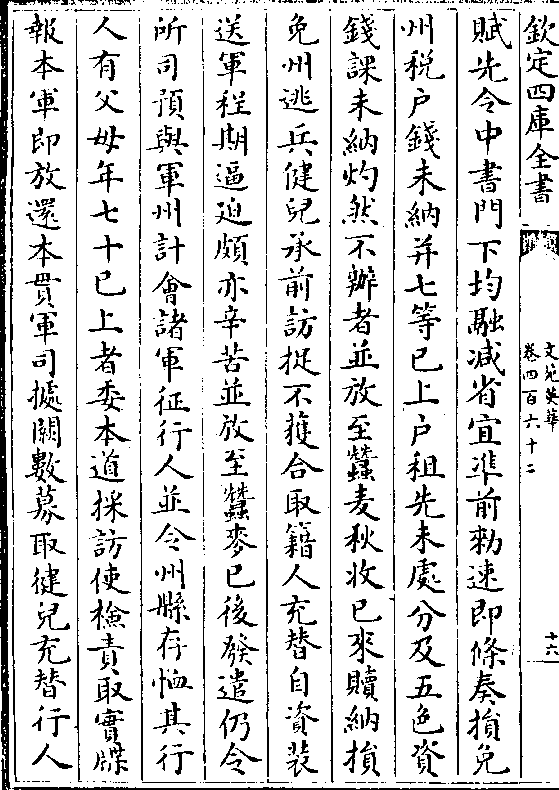 欽定四庫全書
文苑英華
卷四百六十二
十六
賦先令中書門下均融減省宜準前勅速即條奏損免
州稅戶錢未納并七等已上戶租先未處分及五色資
錢課未納灼然不辦者並放至蠶麦秋收已來贖納損
免州逃兵健兒承前訪捉不獲合取籍人充替自資装
送軍程期逼迫頗亦辛苦並放至蠶麥已後發遣仍令
所司預與軍州計會諸軍征行人並令州縣存恤其行
人有父母年七十已上者委本道採訪使檢責取實牒
報本軍即放還本貫軍司據闕數募取健兒充替行人